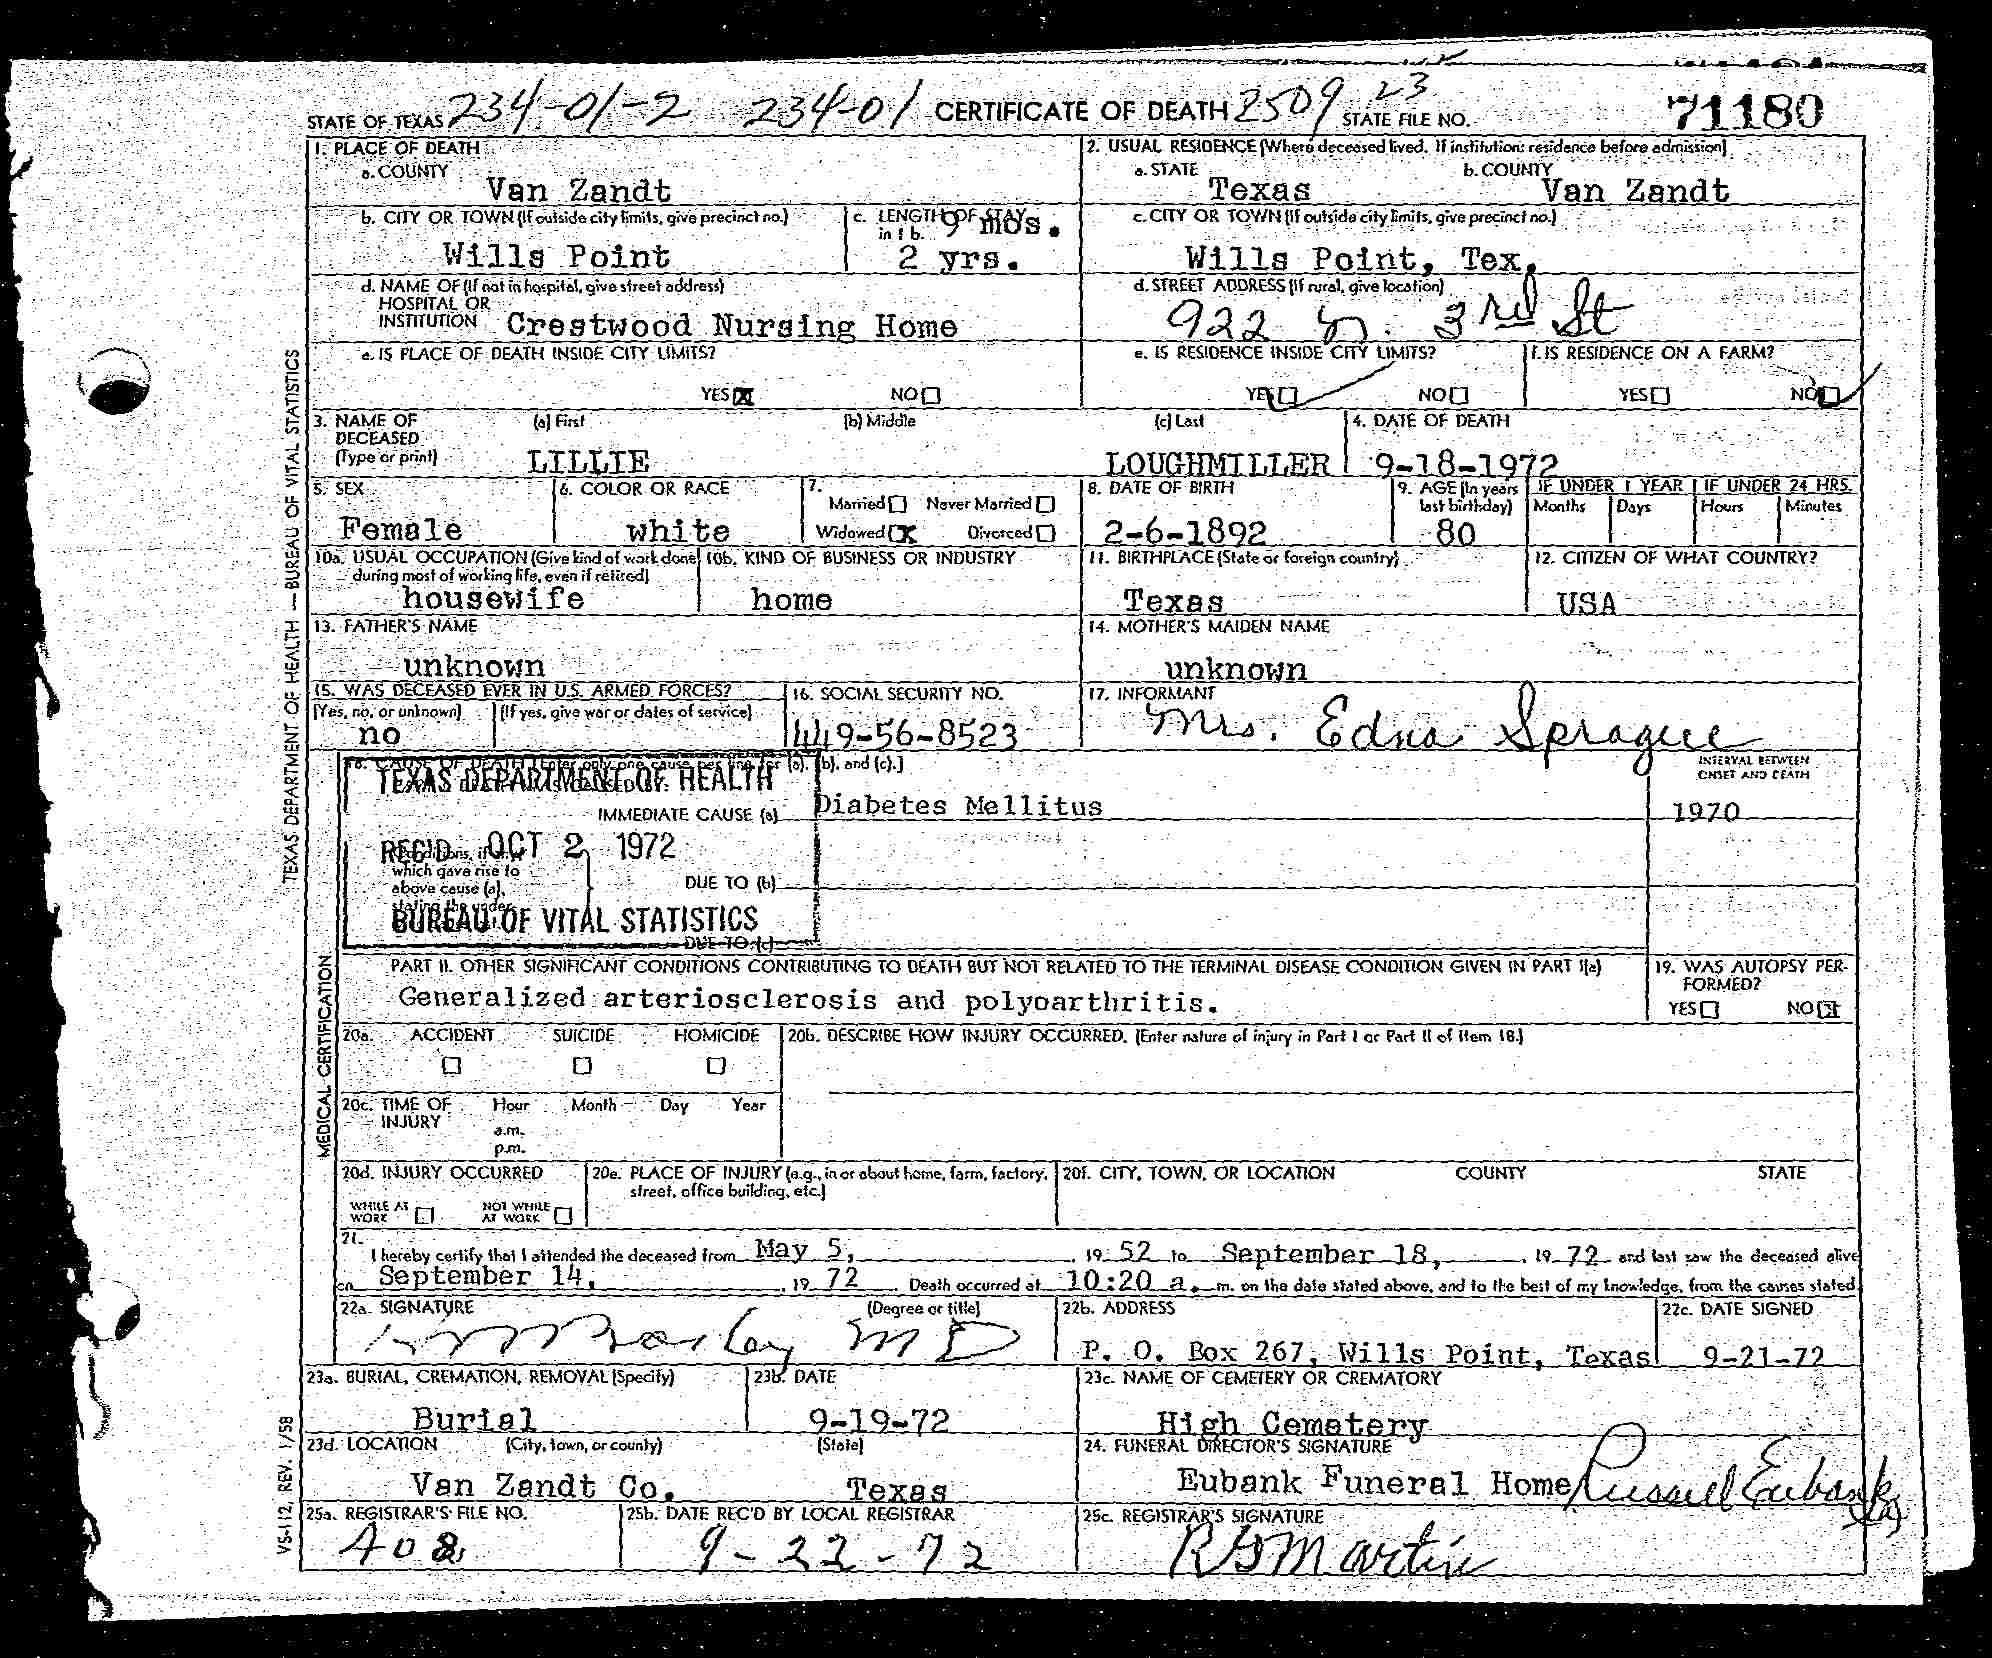 STATE OF TEXAS 234-01-2 234-01 CERTIFICATE OF DEATH 2509 23 STATE FILE NO. 71180
1. PLACE OF DEATH
a. COUNTY
Van Zandt
2. USUAL RESIDENCE (Where deceased lived. If institution: residence before admission)
a. STATE b. COUNTY
Texas Van Zandt
b. CITY OR TOWN (If outside city limits, give precinct no.)
Wills Point
c. LENGTH OF STAY in 1 b. 9 mos.
2 yrs.
c. CITY OR TOWN (If outside city limits, give precinct no.)
Wills Point, Tex.
d. NAME OF (If not in hospital, give street address)
HOSPITAL OR
INSTITUTION Crestwood Nursing Home
d. STREET ADDRESS (If rural, give location)
922 N. 3rd St
e. IS PLACE OF DEATH INSIDE CITY LIMITS?
YES X NO
e. IS RESIDENCE INSIDE CITY LIMITS?
YES NO
f. IS RESIDENCE ON A FARM?
YES NO
3. NAME OF DECEASED (Type or print)
(a) First (b) Middle (c) Last
LILLIE LOUGHMILLER
4. DATE OF DEATH
9-18-1972
5. SEX
Female
6. COLOR OR RACE
white
7.
Married Never Married
Widowed X Divorced
8. DATE OF BIRTH
2-6-1892
9. AGE (In years last birthday)
80
IF UNDER 1 YEAR IF UNDER 24 HRS.
Months Days Hours Minutes
10a. USUAL OCCUPATION (Give kind of work done during most of working life, even if retired)
housewife
10b. KIND OF BUSINESS OR INDUSTRY
home
11. BIRTHPLACE (State or foreign country)
Texas
12. CITIZEN OF WHAT COUNTRY?
USA
13. FATHER'S NAME
unknown
14. MOTHER'S MAIDEN NAME
unknown
15. WAS DECEASED EVER IN U.S. ARMED FORCES?
(Yes, no, or unknown) (If yes, give war or dates of service)
no
16. SOCIAL SECURITY NO.
449-56-8523
17. INFORMANT
Mrs. Edna Sprague
18. CAUSE OF DEATH [Enter only one cause per line for (a), (b), and (c).]
INTERVAL BETWEEN ONSET AND DEATH
TEXAS DEPARTMENT OF HEALTH
IMMEDIATE CAUSE (a) Diabetes Mellitus 1970
REC'D OCT 2 1972
Conditions, if any, which gave rise to above cause (a), stating the under-
DUE TO (b)
BUREAU OF VITAL STATISTICS
DUE TO (c)
PART II. OTHER SIGNIFICANT CONDITIONS CONTRIBUTING TO DEATH BUT NOT RELATED TO THE TERMINAL DISEASE CONDITION GIVEN IN PART I(a)
Generalized arteriosclerosis and polyoarthritis.
19. WAS AUTOPSY PERFORMED?
YES NO X
20a. ACCIDENT SUICIDE HOMICIDE
20b. DESCRIBE HOW INJURY OCCURRED. (Enter nature of injury in Part I or Part II of Item 18.)
20c. TIME OF INJURY Hour Month Day Year
a.m.
p.m.
20d. INJURY OCCURRED
WHILE AT WORK NOT WHILE AT WORK
20e. PLACE OF INJURY (e.g., in or about home, farm, factory, street, office building, etc.)
20f. CITY, TOWN, OR LOCATION COUNTY STATE
21.
I hereby certify that I attended the deceased from May 5, 19 52 to September 18, 19 72 and last saw the deceased alive
on September 14, 19 72 Death occurred at 10:20 a. m. on the date stated above, and to the best of my knowledge, from the causes stated
22a. SIGNATURE (Degree or title)
M D
22b. ADDRESS
P. O. Box 267, Wills Point, Texas
22c. DATE SIGNED
9-21-72
23a. BURIAL, CREMATION, REMOVAL (Specify)
Burial
23b. DATE
9-19-72
23c. NAME OF CEMETERY OR CREMATORY
High Cemetery
23d. LOCATION (City, town, or county) (State)
Van Zandt Co. Texas
24. FUNERAL DIRECTOR'S SIGNATURE
Eubank Funeral Home Russell Eubank
25a. REGISTRAR'S FILE NO.
408
25b. DATE REC'D BY LOCAL REGISTRAR
9-22-72
25c. REGISTRAR'S SIGNATURE
RG Martin
TEXAS DEPARTMENT OF HEALTH — BUREAU OF VITAL STATISTICS
MEDICAL CERTIFICATION
VS-112, REV. 1/58